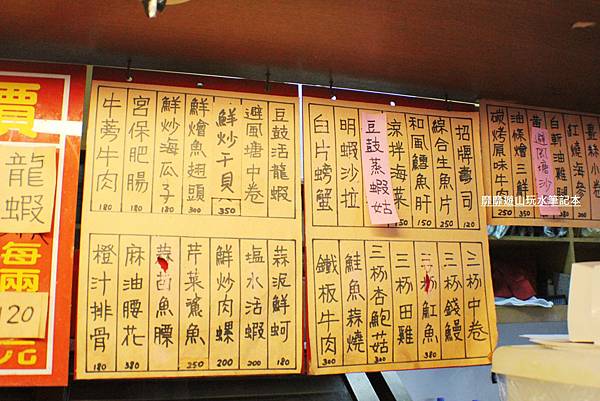 價
龍蝦
每兩
120
豆鼓活龍蝦
避風塘中卷 180
鮮炒干貝 350
鮮燴魚翅頭 300
鮮炒海瓜子 180
宮保肥腸 180
牛蒡牛肉 180
蒜泥鮮蚵 180
塩水活蝦 200
鮮炒肉螺 200
芹菜鯊魚 250
蒜苗魚膘
麻油腰花 380
橙汁排骨 180
招牌壽司 120
綜合生魚片
和風鱈魚肝
涼拌海菜 150
豆鼓蒸蝦姑
明蝦沙拉
白片螃蟹
三杯中卷
三杯錢鰻
三杯魟魚 380
三杯田雞
三杯杏鮑菇 200
鮭魚蒜燒
鐵板牛肉 300
小卷
紅燒海參
白斬油雞
避風塘沙
油條燴三鮮 350
碳烤風味牛肉 250
屏屏遊山玩水筆記本